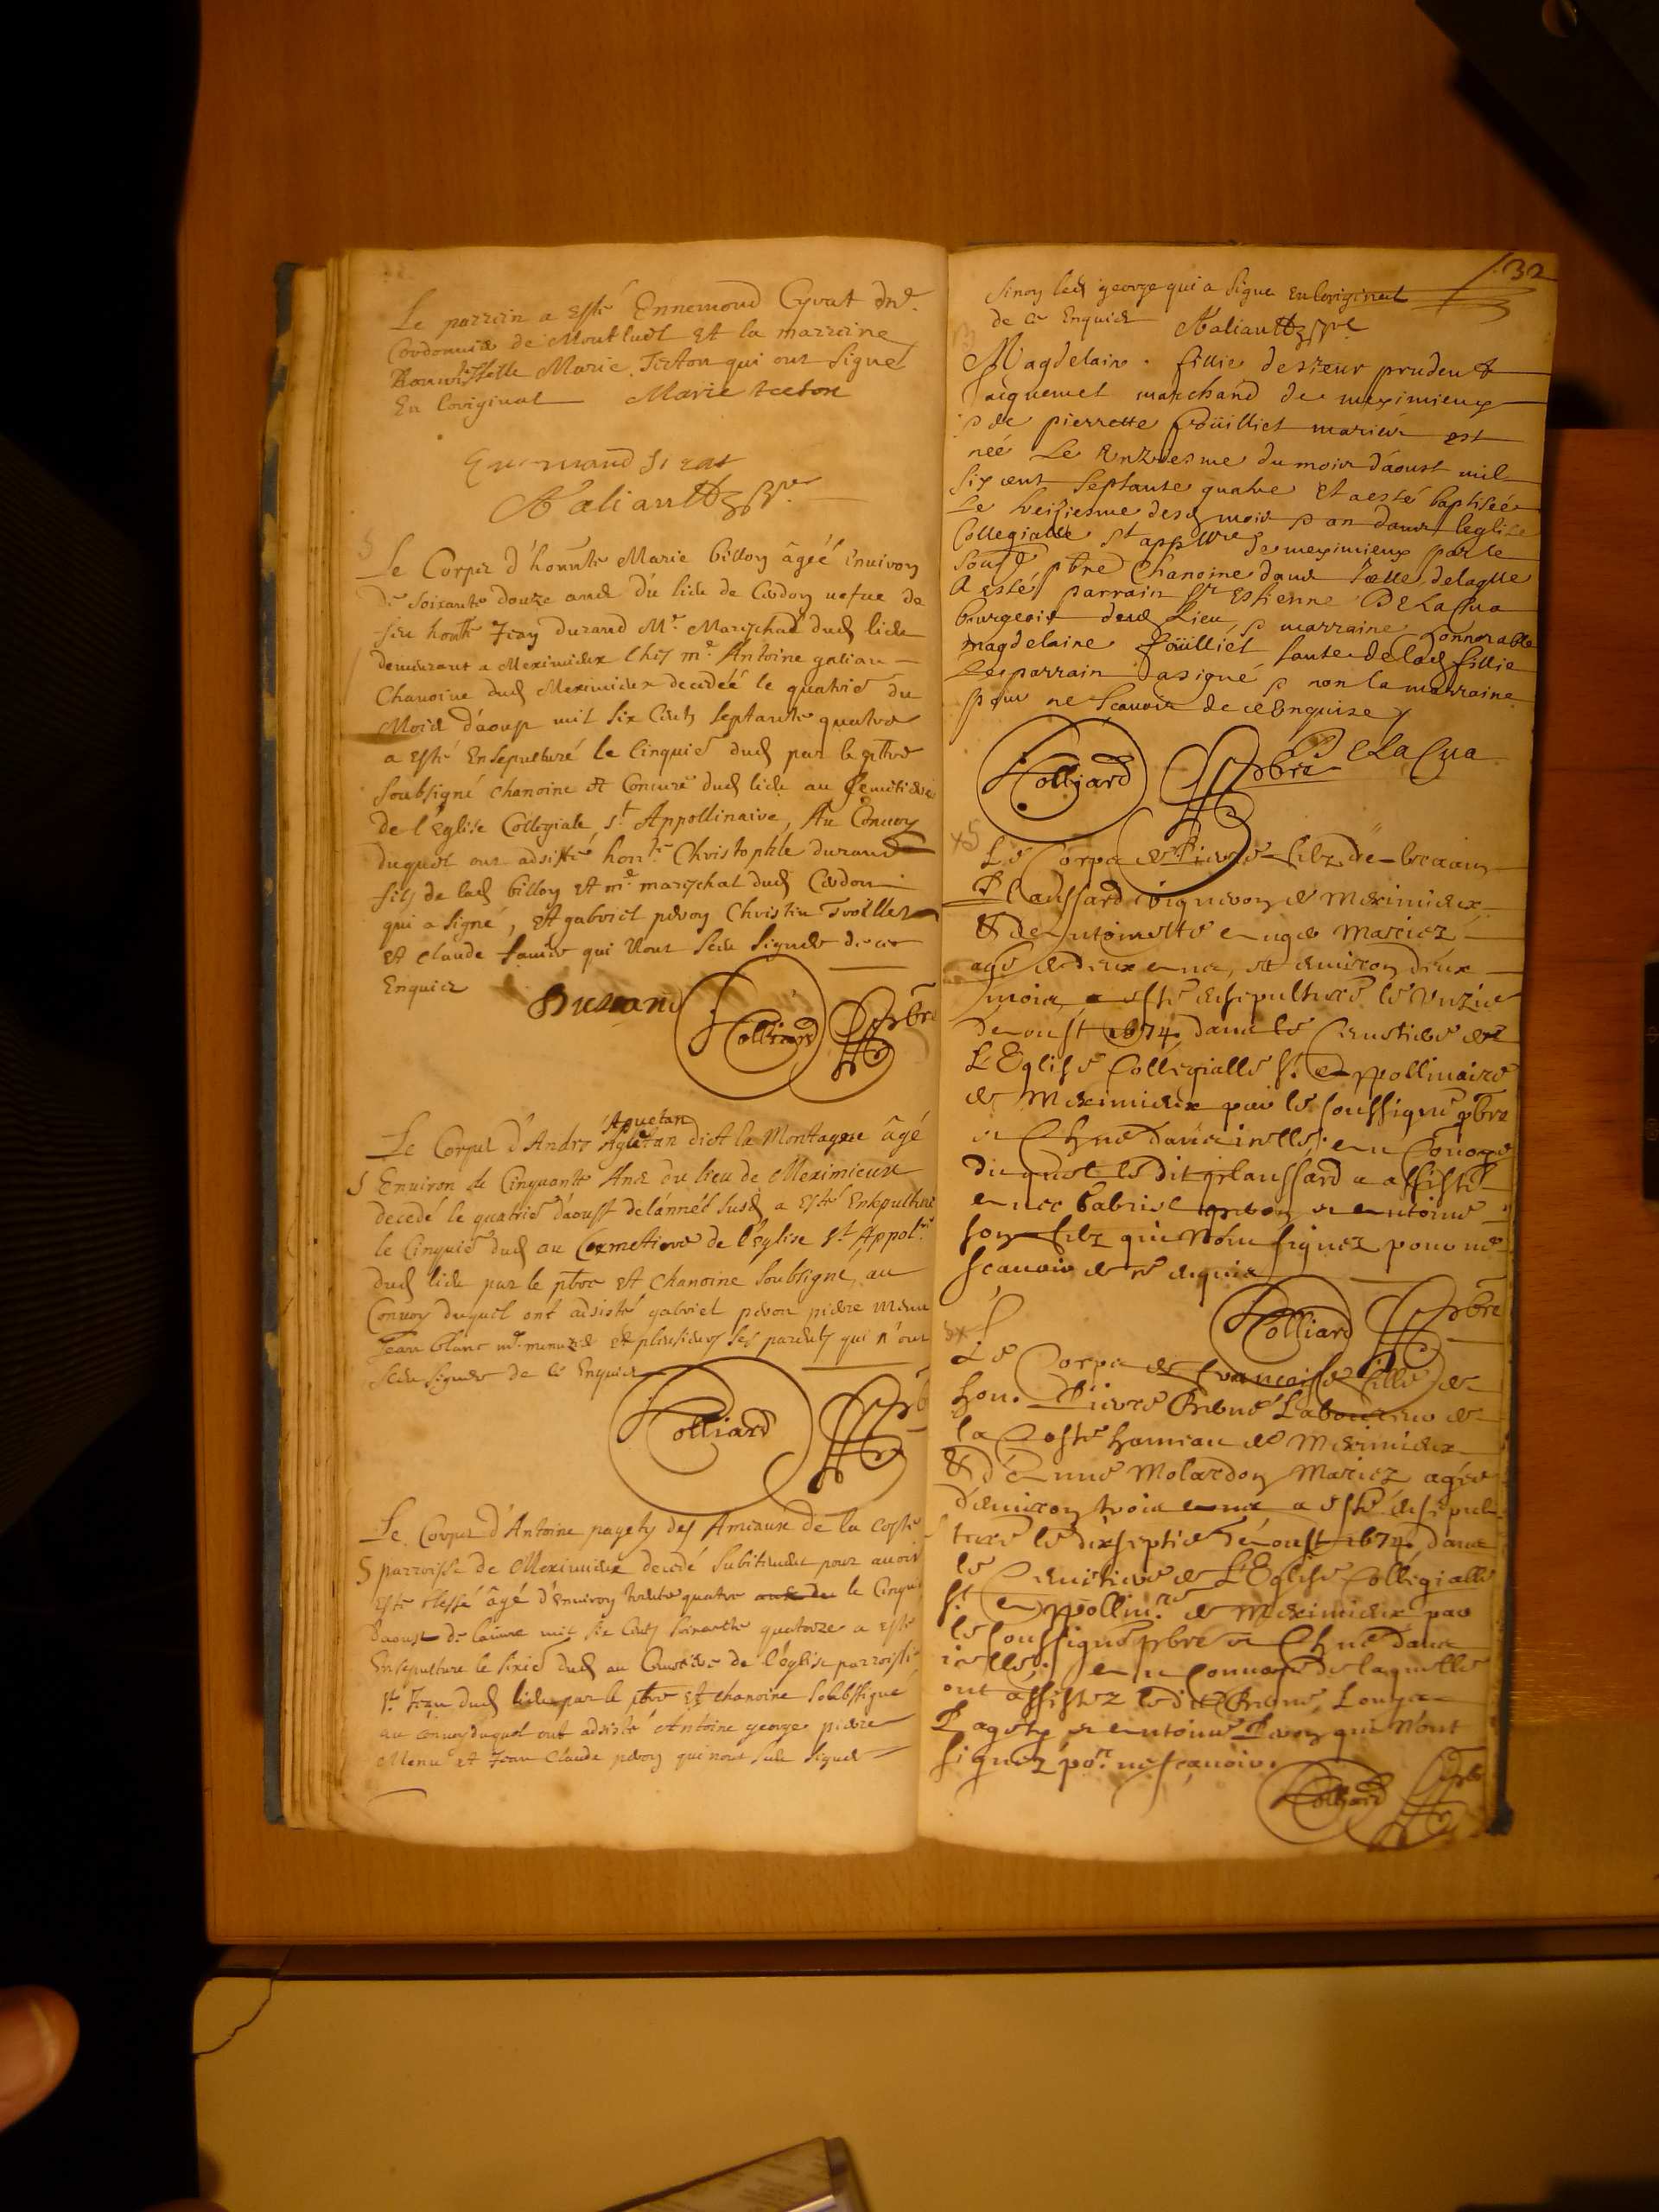 Le parrein a esté Ennemond Cyvat dne.
Cordonnier de Montluel et la marreine
Marie Teston qui ont signé
En l'original Marie teeton
Galiault pre
S
Le Corps d'honnte Marie billon âgéé Enuiron
de soixante douze ans du lieu de Cordon uefue de
feu honte Jean durand Me. Mareschal dud lieu
demeurant a Meximieux chez me. Antoine galian
Chanoine dud Meximieux decedéé le quatrie du
Mois d'aoust mil six cents septante quatre
a esté Ensepulturé le Cinquie dud par le pbre
soubsigné chanoine et Concuré dud lieu au Cemitiere
de l'Eglise Collegiale, St. Appollinaire, Au Conuoy
duquel ont adsisté, honte. Christophle durand
filz de lad billon et me mareschal dud Cordon
qui a signé, et gabriel peron Christin
et claude qui n'ont sceu signer de ce
Enquiez
Durand Colliard pbre
Aguetan
Le Corps d'Andre dict la Montagne âgé
S Environ de Cinquante Ans du lieu de Meximieux
decedé le quatrie d'aoust de l'année susd a esté Ensepulturé
le Cinquie dud au Cemetiere de l'Eglise St. Appolre
dud lieu par le pbre et chanoine soubsigné, au
Convoy duquel ont adsisté gabriel peron piere Menu
Jean blanc me. menuzier et plusieurs ses parents qui n'ont
sceu signer de ce Enquiez
Colliard pb
Le Corps d'Antoine pagety des Amiaux de la Coste
S parroisse de Meximieux decedé subitement pour auoir
esté blessé âgé d'enuiron trente quatre le Cinquie
daoust de l'année mil six cents soixante quatorze a esté
Ensepulture le sixie dud au Cemetiere de l'église parroissi
St. Jean dud lieu par le pbre et chanoine soubssigné
au conuoy duquel ont adsisté Antoine george piere
Menu et Jean Claude peron qui n'ont sceu signer
132
sinon led george qui a signé En l'original
de ce Enquiez Galiault pre
Magdelaine fillie de sieur prudent
Jacquemet marchand de meximieux
& de pierrette foüilliet mariés est
néé Le Onziesme du mois d'aoust mil
six cent septante quatre et a esté baptiséé
Le treisiesme desd mois & an dans leglise
Collegialle St appllre de meximieux par le
soussé pbre Chanoine dans icelle, de laqlle
A esté parrain Sr Estienne DeLaCua
bourgeois dud Lieu, & marraine honnorable
magdelaine foüilliet tante de lad fillie
Le parrain a signé & non la marraine
pour ne Scauoir de ce Enquise
Colliard pbre DeLaCua
x5
Le Corps de Pierre filz de
Plaussard vigneron de Meximieux
& de Antoinette mariez
agé de deux ans, et enuiron deux
mois, a esté ensepulturé le Unzie
de oust 1674. dans le Cemetiere de
L'Eglise Collegialle St. Appollinaire
de Meximieux par le soussigné pbre
et Chne dans icelle, au Conoye
duquel le dit plaussard a assisté
auec Gabriel peron et antoine
son filz qui n'ont signez pour ne
scauoir de ce enquis
Colliard pbre
5x
Le Corps de francoise fille de
hon. Pierre Laboureur de
la Coste hameau de Meximieux
& d'Anne Molardon Mariez agée
d'enuiron trois ans a esté ensepul-
turé le dixseptie d'aoust 1674. dans
le Cemetiere de L'Eglise Collegialle
St. Appollinre de Meximieux par
le soussigné pbre et Chne dans
icelle, au Conuoye de laquelle
ont assistez ledit Louys
Pagety et antoine Peron qui n'ont
signez por. ne scauoir.
Colliard pbre